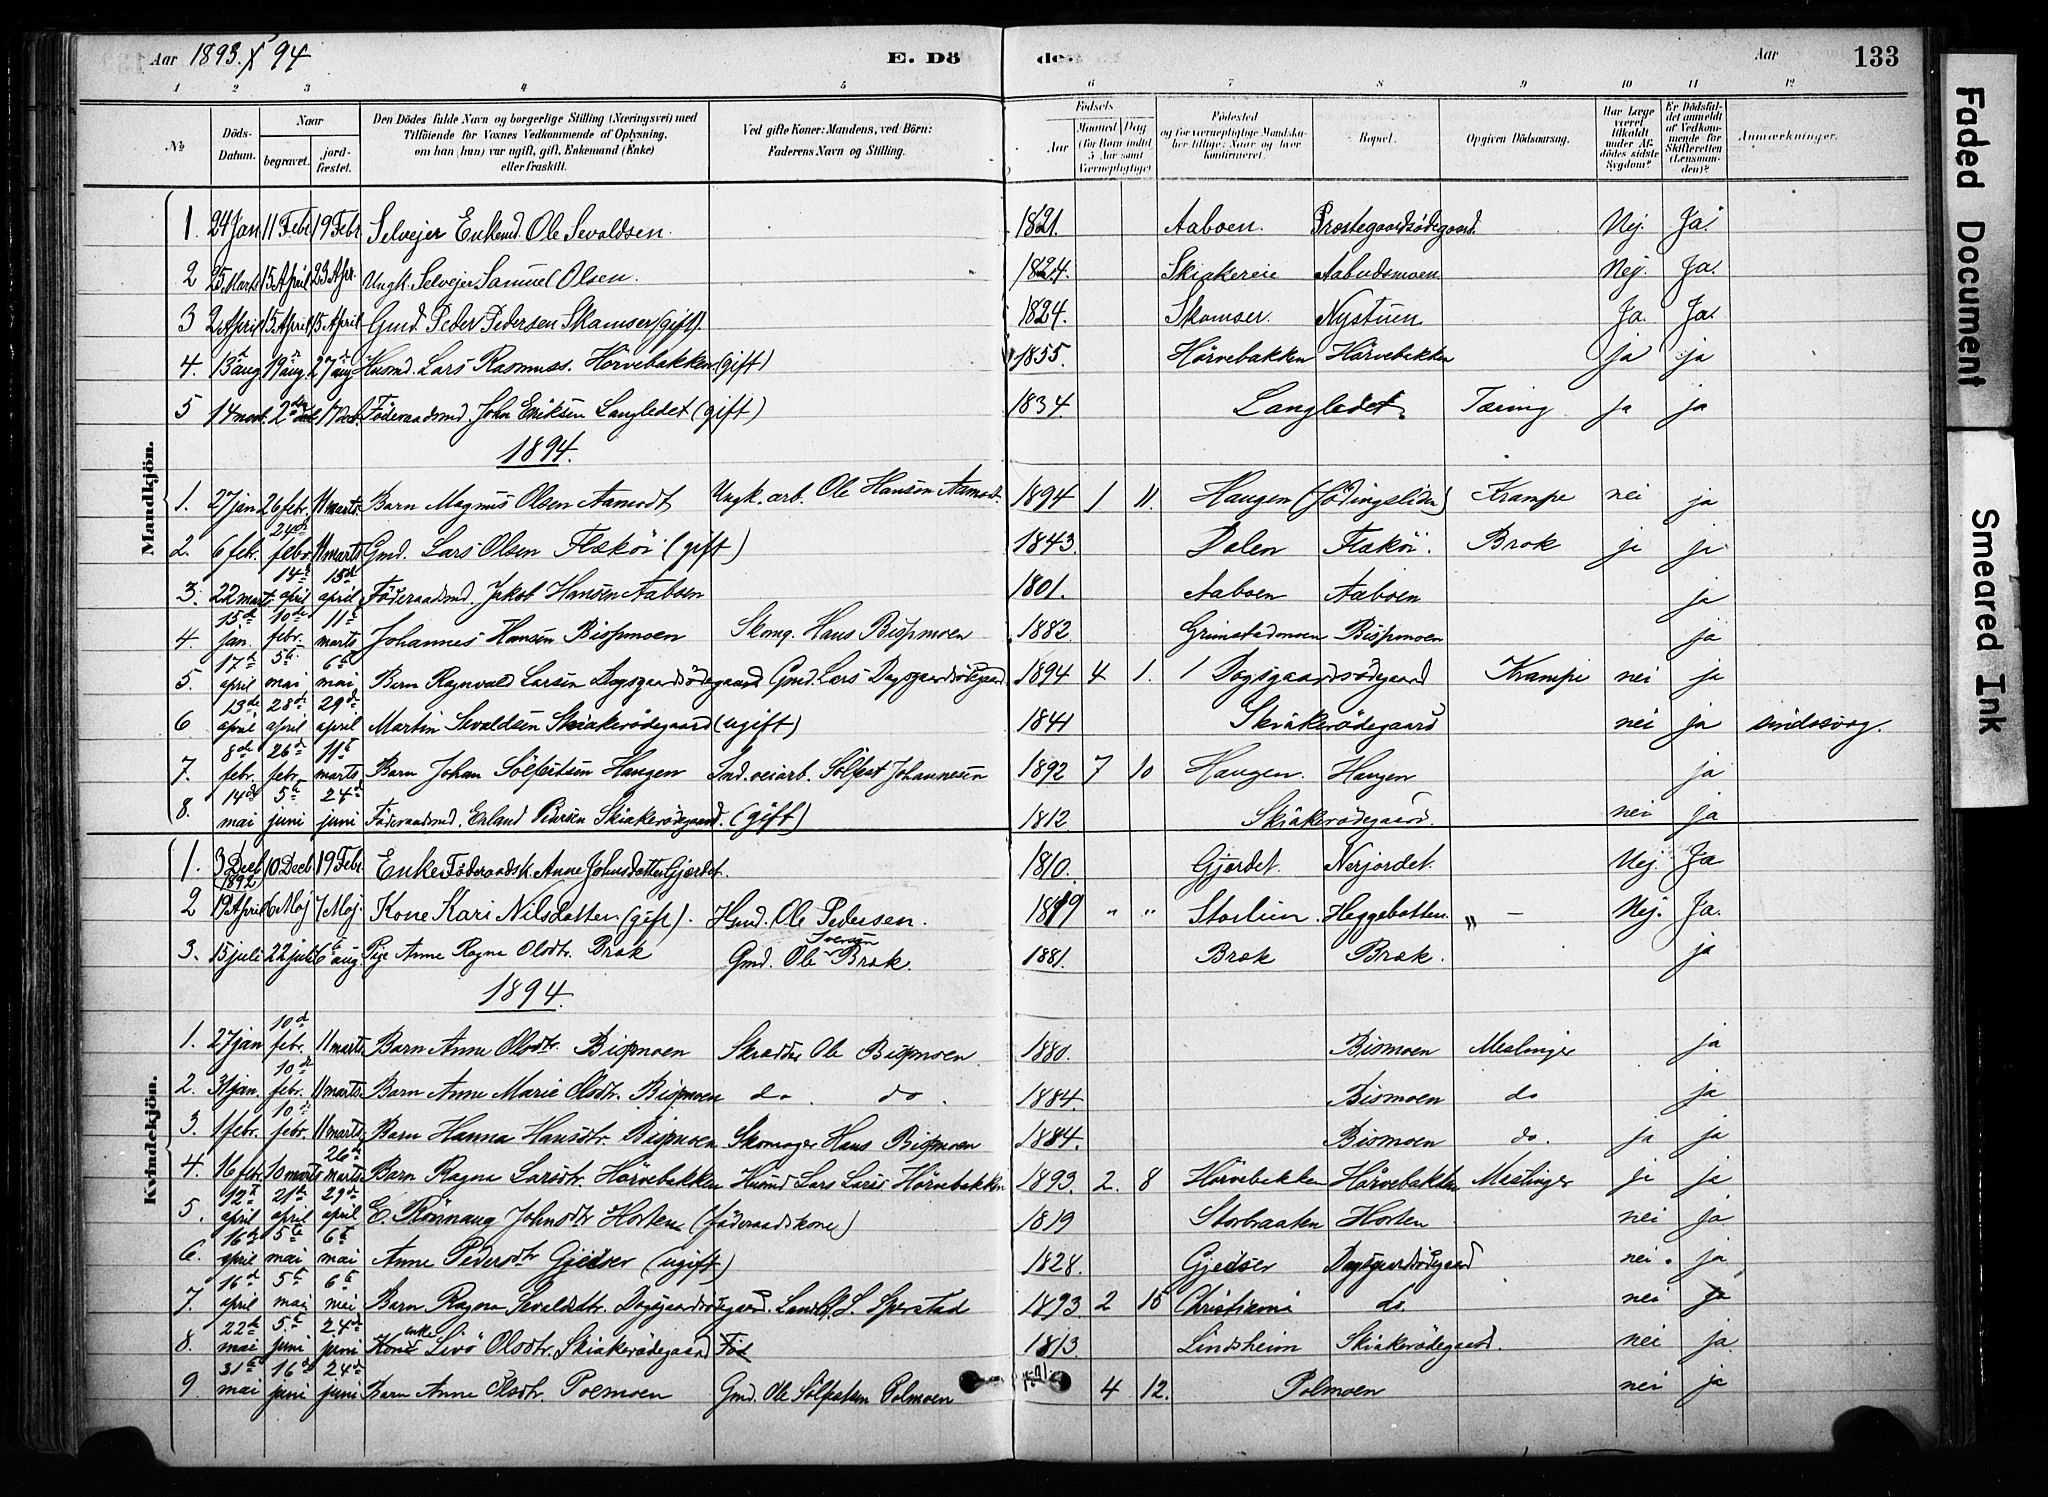 Aar 1893 & 94 E. Dö de. Aar 133
1 2 3 4 5 6 7 8 9 10 11 12
№ Döds-Datum. Naar begravet. jordfæstet. Den Dödes fulde Navn og borgerlige Stilling (Næringsvei) med Tilföiende for Voxnes Vedkommende af Oplysning, om han (hun) var ugift, gift, Enkemand (Enke) eller fraskilt. Ved gifte Koner: Mandens, ved Börn: Faderens Navn og Stilling. Födsels Aar Maaned Dag (for Börn indtil 5 Aar samt Værnepligtige) Födested og for værnepligtige Mandskaber tillige: Naar og hvor konfirmeret. Bopæl. Opgiven Dödsaarsag. Har Læge været tilkaldt under Afdödes sidste Sygdom? Er Dödsfaldet anmeldt af Vedkommende for Skifteretten (Lensmanden)? Anmærkninger.
Mandkjön.
1. 24 Jan 11 Febr 19 Febr Selvejer Enkemd. Ole Sevaldsen. 1821. Aaboen. Prostegaardsödegaard. Nej. Ja.
2 25 Marts 15 April 23 Apr. Ungk. Selvejer Samuel Olsen. 1824. Skiakereie Aabudsmoen Nej. Ja.
3 2 April 15 April 15 April Gmd. Peder Pedersen Skamser (gift). 1824. Skamser. Nystuen Ja. Ja.
4. 13 aug 19 aug. 27 aug Husmd. Lars Rasmuss. Hörvebakken (gift) 1855. Hörvebakken Hörvebakken ja ja
5 14 novb. 2den decb 17 Decb. Föderaadsmd. John Eriksen Langledet (gift) 1834 Langledet. Tæring ja ja
1894.
1. 27 jan 26 febr. 11 marts. Barn Magnus Olsen Aamodt Ungk. arb. Ole Hanson Aamodt. 1894 1 11. Haugen (födingsliden) Krampe nei ja
2. 6 febr. 24de febr 11 marts Gmd. Lars Olsen Flæköi (gift) 1843. Dalen Flæköi. Brok ja ja
3. 22 marts 14de april 15de april Föderaadsmd. Jakob Hansen Aaboen 1801. Aaboen Aaboen ja
4. 15de jan. 10de febr. 11te marts Johannes Hansen Bispmoen Skomg. Hans Bispmoen 1882. Grimstadmoen Bispmoen ja
5. 17de april 5te mai 6te mai Barn Ragnvald Larsen Dagsgaardsödegaard Gmd. Lars Dagsgaardsödegaard 1894 4 1. Dagsgaardsödegaard Krampe nei ja
6 13de april 28de april 29de april Martin Sevaldsen Skiakerödegaard (ugift) 1841 Skiakerödegaard nei ja sindssvag.
7. 8de febr. 26de febr. 11te marts Barn Johan Sölfestsen Haugen Ind. veiarb. Sölfest Johannesen 1892 7 10 Haugen. Haugen ja
8. 14de mai 5te juni 24de juni Föderaadsmd. Erland Pedersen Skiakerödegaard. (gift) 1812 Skiakerödegaard. nei ja
Kvindekjön.
1. 3 Decb 1892 10 Decb 19 Febr. Enke Föderaadsk. Anne Johnsdatter Gjærdet. 1810. Gjærdet. Nerjordet. Nej. Ja
2 19 April 6 Maj 7 Maj. Kone Kari Nilsdatter. (gift). Husmd. Ole Pedersen. 1819 " " Storlien. Heggebotten. " – Nej. Ja.
3. 15 juli 22 juli 6te aug. Pige Anne Ragna Olsdtr. Bræk Gmd. Ole Iversen Bræk. 1881. Bræk Bræk. ja
1894.
1. 27 jan 10de febr. 11 marts Barn Anne Olsdtr. Bispmoen Skrædder Ole Bispmoen 1880. Bismoen Meslinger ja
2. 31 jan. 10de febr. 11 marts. Barn Anne Marie Olsdtr. Bispmoen do. do. 1884. Bismoen do ja
3. 1 febr. 10de febr. 11 marts Barn Hanna Hansdtr. Bispmoen Skomager Hans Bispmoen 1884. Bismoen do. ja ja
4. 16 febr. 10 marts 26de marts Barn Ragna Larsdtr. Hörvebakken Husmd Lars Lars Hörvebakken 1893. 2. 8 Hörvebakken Hörvebakken Meslinger ja ja
5. 12te april 21de april 29de april E. Rönnaug Johnsdtr Horten (föderaadskone) 1819 Storbraaten Horten nei ja
6. 16de april 5te mai 6te mai Anne Pedersdtr Gjedser (ugift) 1828. Gjedser Dagsgaardsödegaard nei. ja
7. 16de april 5te mai 6te mai Barn Ragna Sevaldsdtr. Dagsgaardsödegaard. Landh. S. Sperstad 1893 2 15 Christiania do. nei ja
8. 22de mai 5te juni 24de juni Kone enke Sivö Olsdtr. Skiakerödegaard Föd 1813. Lindsheim Skiakerödegaard. nei ja
9. 31te mai 16de juni 24de juni Barn Anne Olsdtr. Polmoen Gmd. Ole Sölfestsen Polmoen 4 12. Polmoen nei ja
Faded Document
Smeared Ink